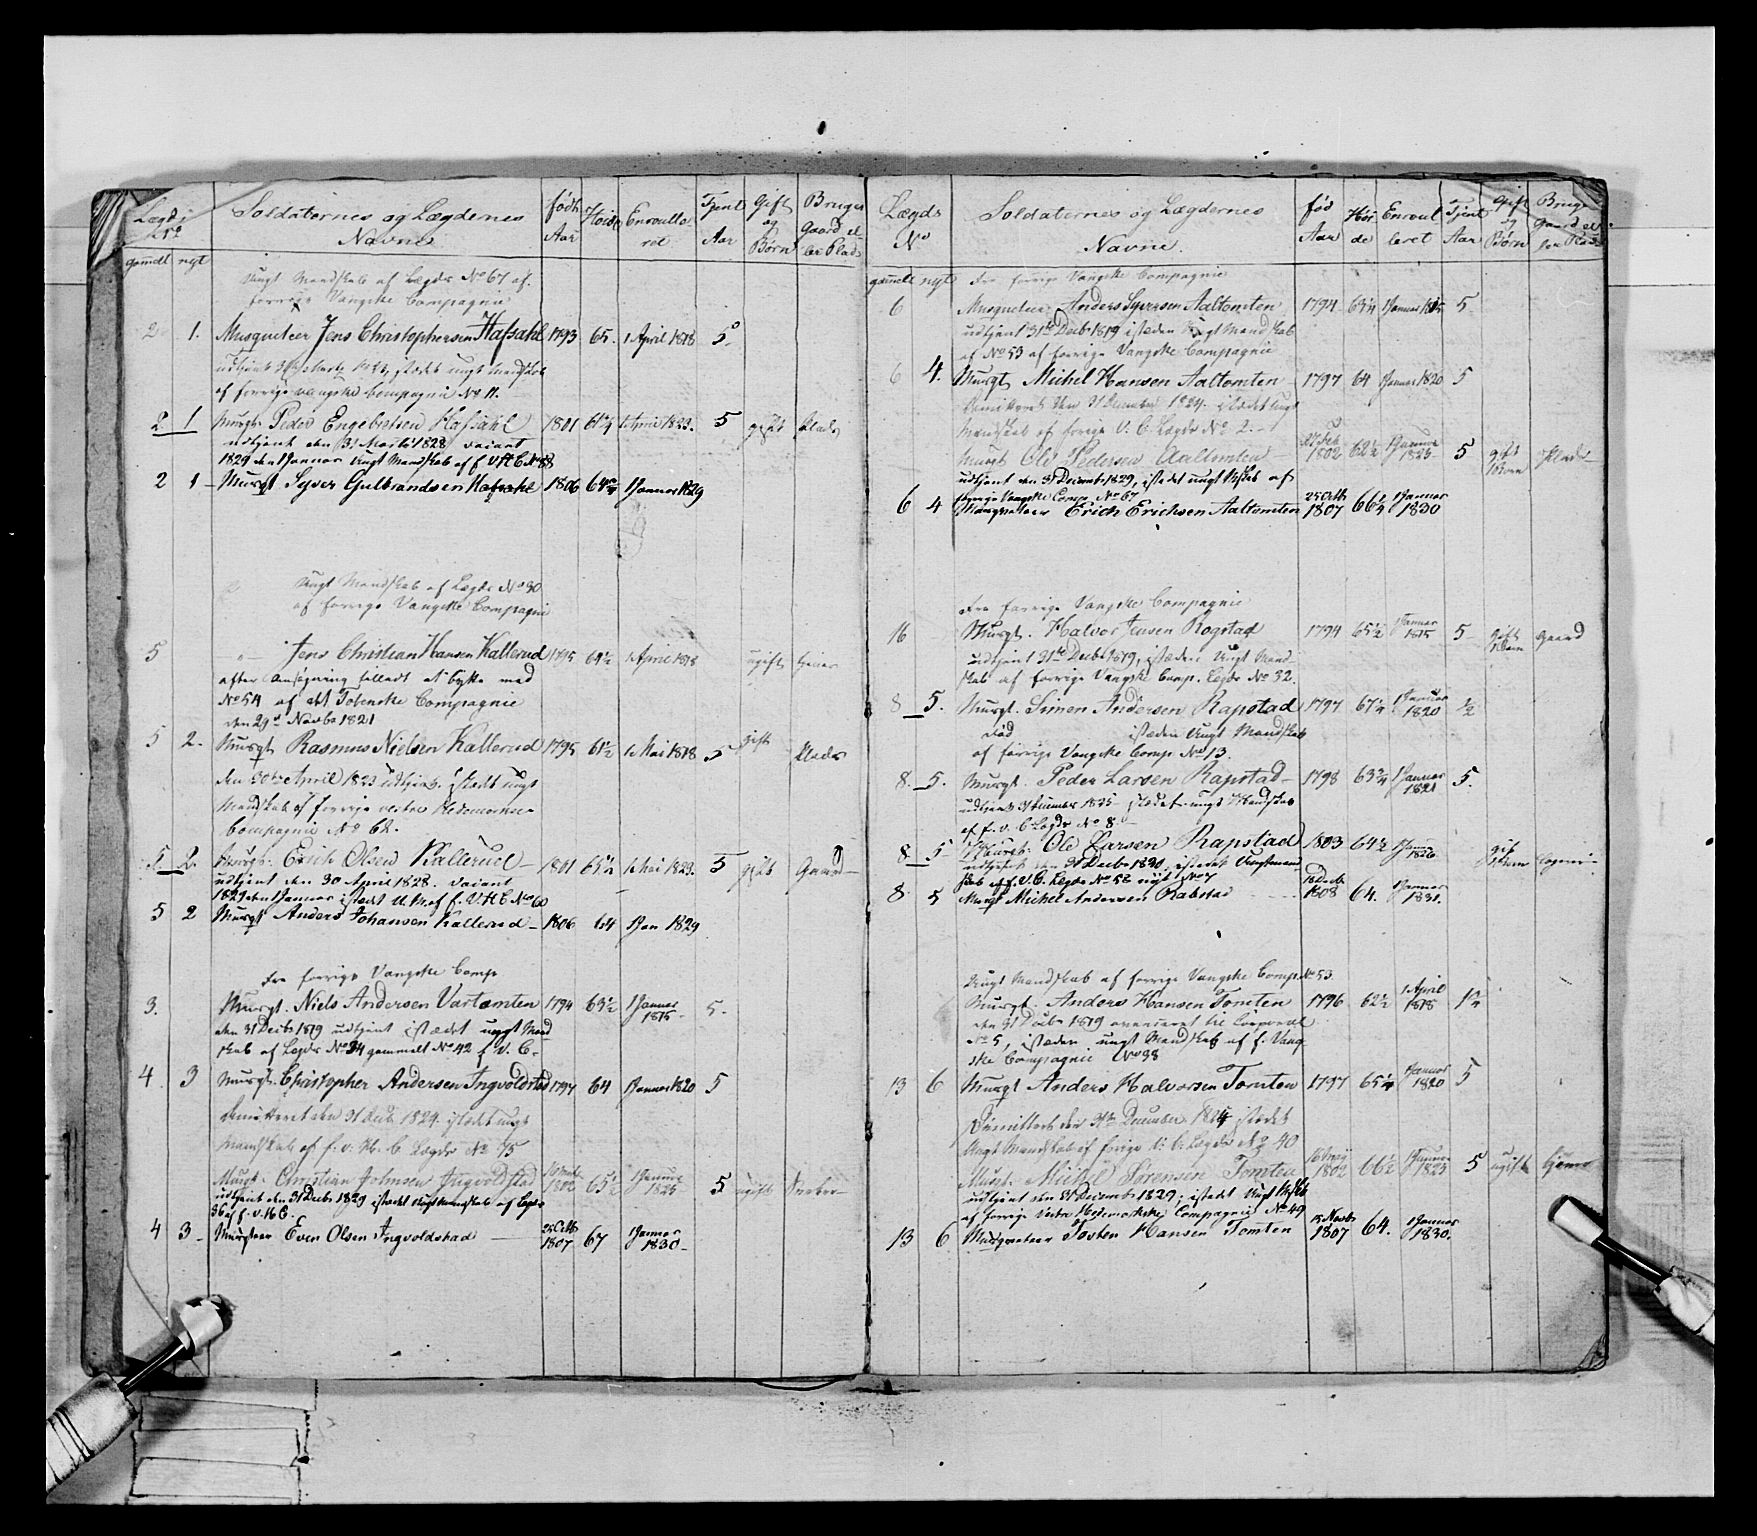 Lægds No Soldaternes og Lægdernes Navne født Aar Høide Enroulleret Tjent Aar Gift og Børn Bruger Gaard eller Plads
gamelt nyt
Ungt Mandskab af Lægds No 67 af
forrige Vangske Compagnie
2 1. Musqueteer Jens Christophersen Hafsahl 1793 65. 1 April 1818 5.
udtjent Martz istædet ungt mandskab
af forrige vangske Compagnie No 11.
2 1 Musqt. Peder Engebretsen Hafsahl 1801 61 1/4 1 April 1823. 5 gift Plads
udtjent den 31 Marts 1828 vacant
1829 den 1 Januar Ungt Mandskab af f. V. H. C No 88
2 1 Musqt Syver Gulbrandsen Hafsahl 1806 64 3/4 1 Januar 1829
Ungt Mandskab af Lægds No 30
af forrige Vangske Compagnie
5 Jens Christian Hansen Kallerud 1795 69 1/2 1 April 1818 ugift
efter Ansøgning tilladt at bytte med
No 54 af det Totenske Compagnie
den 29de Novbr 1821
5 2. Musqt Rasmus Nielsen Kallerud 1795 61 1/2 1 Mai 1818 5 gift Plads
den 30te April 1823 udtjent. istædet ungt
Mandskab af forrige vestre Hedemarkens
Compagnie No 62.
5 2. Musqt. Erich Olsen Kallerud 1801 65 1/4 1 Mai 1823. 5 gift Gaard
udtjent den 30 April 1828. vacant
1829 den 1 Januar istædet U. M. af f. V. H. C No 60
5 2 Musqt Anders Johansen Kallerud 1806 64 1 Jan 1829
Fra forrige Vangske Comp
3. Musqt. Niels Andersen Vartomten 1794 63 1/2 1 Januar 1815 5.
den 31 Decbr 1819 udtjent istædet ungt Mand
skab af Lægds No 34 gammelt No 42 f. V. C.
4 3 Musqt. Christopher Andersen Ingvoldstad 1797 64 1 Januar 1820 5
Demitteret den 31 Decb. 1824. istædet ungt
Mandskab af f. v. H. C Lægds No 75
Musqt. Christian Johnsen Ingvoldstad 1802 65 1/2 1 Januar 1825 5 ugift
udtjent den 31 Decbr 1829 istædet Ungt Mandskab af Lægds
36 af f. v. H. C.
4 3 Musqteer Even Olsen Ingvoldstad 25 Octb 1807 67 1 Januar 1830
Lægds No Soldaternes og Lægdernes Navne. fød Aar Høide Enroulleret Tjent Aar Gift og Børn Bruger Gaard eller Plads
gamelt nyt Fra forrige Vangske Compagnie
6 Musqueteer Anders Syversen Aaltomten 1794 63 1/4 1 Januar 1815 5
udtjent 31te Decbr 1819 istæden Ungt Mandskab
af No 53 af forrige Vangske Compagnie
6 4. Musqt Michel Hansen Aaltomten 1797 64 Januar 1820 5
Demitteret den 31 December 1824. istædet ungt
Mandskab af forrige V. C. Lægds No 2.
Musqt Ole Pedersen Aaltomten 27 Feb 1802 62 1/2 1 Januar 1825 5 gift 1 Barn Plads
udtjent den 31 Decembr 1829, istædet ungt Mskab af
forrige Vangske Comp No 67
6 4 Musqueteer Erich Erichsen Aaltomten 25 Octb 1807 66 1/4 1 Januar 1830
Fra forrige Vangske Compagnie
16 Musqt. Halvor Jensen Rogstad 1794 65 1/2 1 Januar 1815 5 gift 1 Barn Gaard
udtjent 31te Decbr 1819, istæden Ungt Mand-
skab af forrige Vangske Comp. Lægds No 32.
8 5. Musqt. Simen Andersen Rapstad 1797 67 1/4 1 Januar 1820 1/2
Død istæden Ungt Mandskab
af forrige Vangske Comp No 13.
8. 5. Musqt. Peder Larsen Rapstad 1798 63 3/4 1 Januar 1821 5.
udtjent 31 December 1825 istædet ungt Mandskab
af f. v. C Lægds No 8.
8 5 Musqt. Ole Larsen Rapstad 1803 64 1/2 1 Januar 1826 gift 1 Barn
udtjent den 31 Decbr 1830, istædet Ungt man
skab af f. V. C. Lægds No 52 nyt No 7
8 5 Musqt Michel Andersen Rabstad 18 Decb 1808 64. 1 Januar 1831.
Ungt Mandskab af forrige Vangske Comp. No 53
Musqt. Anders Hansen Tomten 1796 62 1/2 1 April 1818 1 3/4
den 31 Decbr 1819 avanceret til Corporal
No 5, istæden ungt Mandskab af f. Vang
ske Compagnie No 38
13 6 Musqt Anders Halvorsen Tomten 1797 65 1/4 1 Januar 1820 5
Dimitteret den 31te December 1824 istædet
Ungt Mandskab af forige V. C. Lægds No 40
Musqt. Michel Sørensen Tomten 1802 66 1/2 1 Januar 1825 5 ugift hjeme
udtjent den 31 Decembr 1829; istædet Ungt Mskb
af forrige Vestre Hedemarkske Compagnie No 49
13 6 Musqueteer Josten Hansen Tomten 15 Novbr 1807 64. 1 Januar 1830.